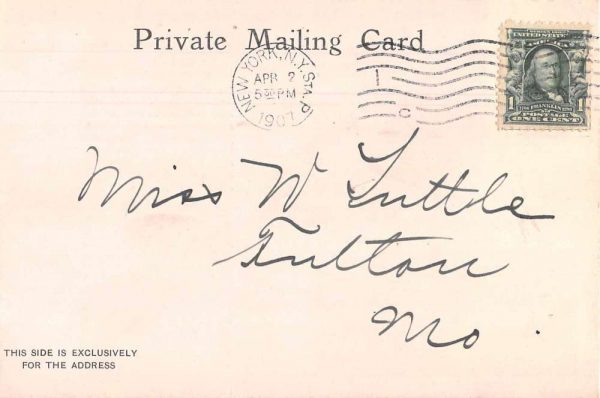 Private Mailing Card
NEW YORK, N.Y. STA. P
APR 2
5 30 PM
1907
1 C
SERIES 1902
UNITED STATES OF AMERICA
1706 FRANKLIN 1790
1 POSTAGE 1
ONE CENT
Miss W Tuttle
Fulton
Mo.
THIS SIDE IS EXCLUSIVELY
FOR THE ADDRESS